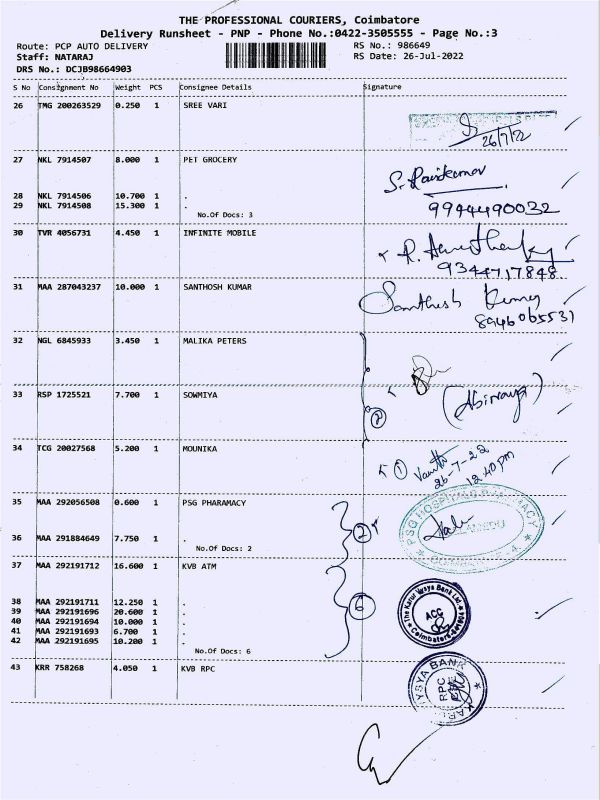 THE PROFESSIONAL COURIERS, Coimbatore
Delivery Runsheet - PNP - Phone No.:0422-3505555 - Page No.:3
Route: PCP AUTO DELIVERY
RS No.: 986649
Staff: NATARAJ
RS Date: 26-Jul-2022
DRS No.: DCJB98664903
S No Consignment No Weight PCS Consignee Details Signature
26 TMG 200263529 0.250 1 SREE VARI
26/7/22
27 NKL 7914507 8.000 1 PET GROCERY
28 NKL 7914506 10.700 1 .
29 NKL 7914508 15.300 1 .
9944490032
No.Of Docs: 3
30 TVR 4056731 4.450 1 INFINITE MOBILE
9344717848
31 MAA 287043237 10.000 1 SANTHOSH KUMAR
Santhosh Kumar
8946065531
32 NGL 6845933 3.450 1 MALIKA PETERS
33 RSP 1725521 7.700 1 SOWMIYA
2
(Abinaya)
34 TCG 20027568 5.200 1 MOUNIKA
1
26-7-22
12.40pm
35 MAA 292056508 0.600 1 PSG PHARAMACY
PSG HOSPITALS PHARMACY
COIMBATORE-4.
36 MAA 291884649 7.750 1 .
2
No.Of Docs: 2
37 MAA 292191712 16.600 1 KVB ATM
38 MAA 292191711 12.250 1 .
39 MAA 292191696 20.600 1 .
40 MAA 292191694 10.000 1 .
41 MAA 292191693 6.700 1 .
42 MAA 292191695 10.200 1 .
No.Of Docs: 6
6
The Karur Vysya Bank Ltd.
ACC
43 KRR 758268 4.050 1 KVB RPC
VYSYA BANK
RPC